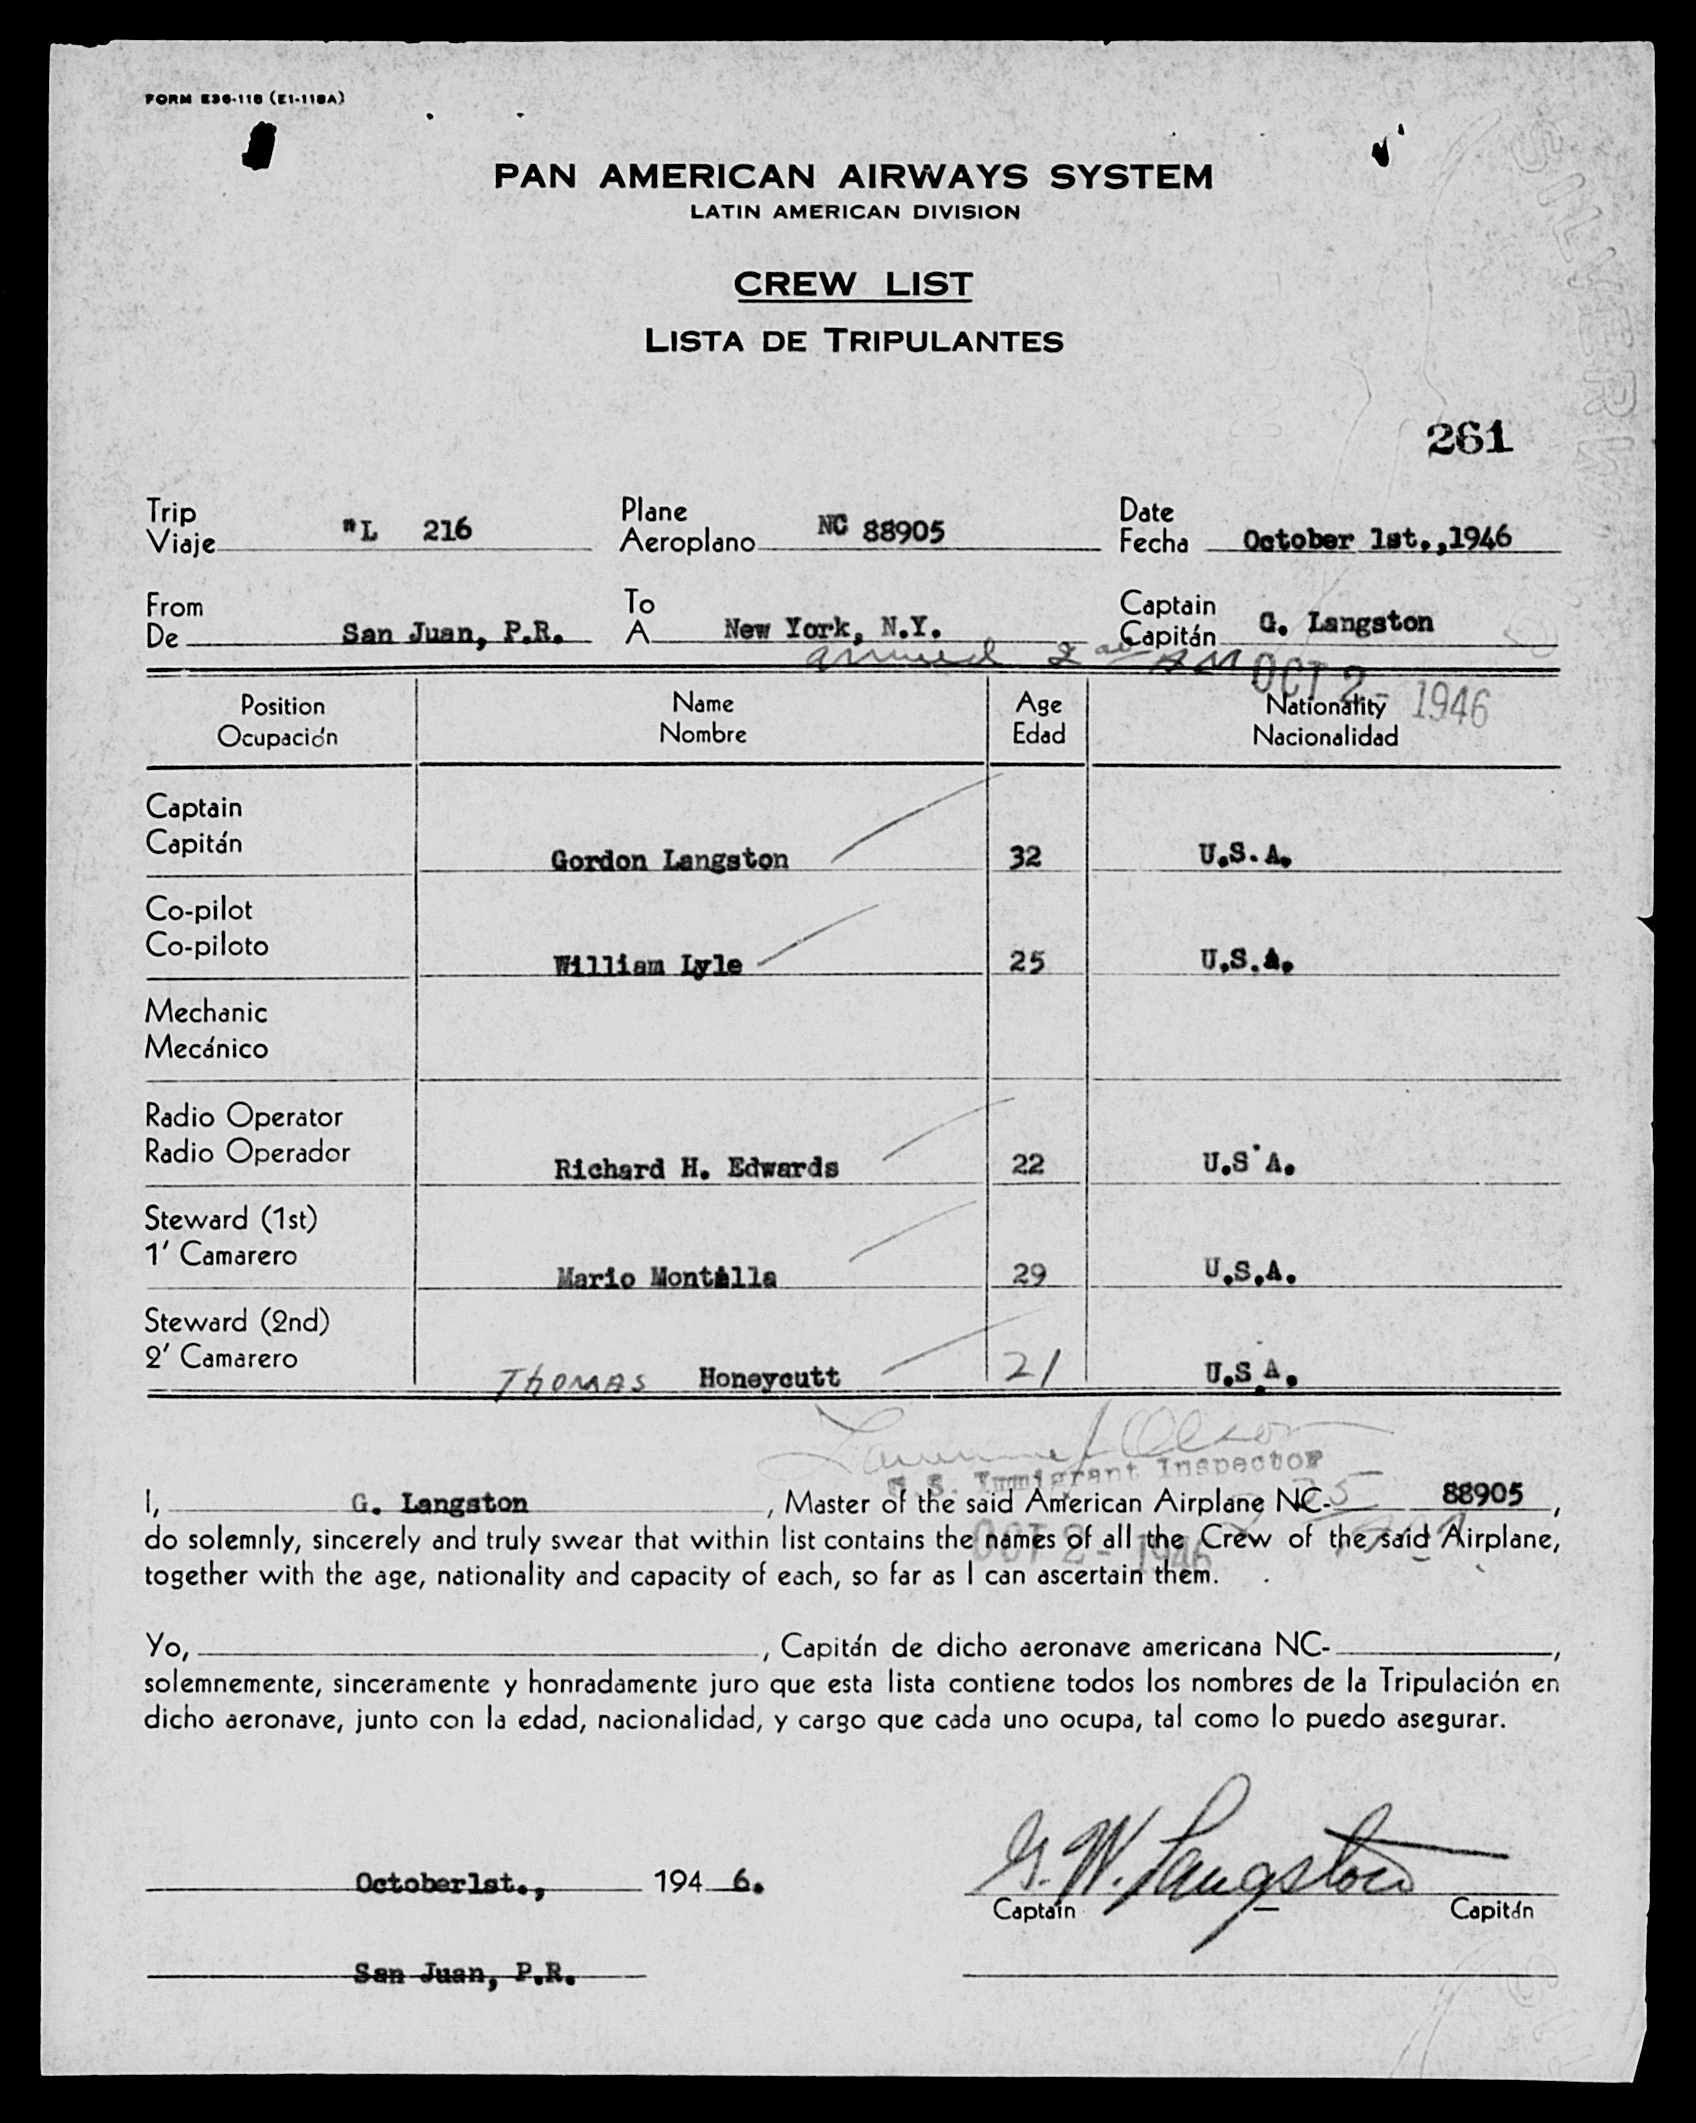 FORM E36-118 (E1-118A)
PAN AMERICAN AIRWAYS SYSTEM
LATIN AMERICAN DIVISION
CREW LIST
LISTA DE TRIPULANTES
261
Trip Plane Date
Viaje "L 216 Aeroplano NC 88905 Fecha October 1st.,1946
From To Captain
De San Juan, P.R. A New York, N.Y. Capitán G. Langston
arrived AM OCT 2 - 1946
Position Name Age Nationality
Ocupación Nombre Edad Nacionalidad
Captain
Capitán Gordon Langston 32 U.S.A.
Co-pilot
Co-piloto William Lyle 25 U.S.A.
Mechanic
Mecánico
Radio Operator
Radio Operador Richard H. Edwards 22 U.S.A.
Steward (1st)
1' Camarero Mario Montilla 29 U.S.A.
Steward (2nd)
2' Camarero THOMAS Honeycutt 21 U.S.A.
Olson
U.S. Immigrant Inspector
I, G. Langston, Master of the said American Airplane NC- 88905,
do solemnly, sincerely and truly swear that within list contains the names of all the Crew of the said Airplane,
OCT 2 - 1946
together with the age, nationality and capacity of each, so far as I can ascertain them.
Yo, , Capitán de dicho aeronave americana NC- ,
solemnemente, sinceramente y honradamente juro que esta lista contiene todos los nombres de la Tripulación en
dicho aeronave, junto con la edad, nacionalidad, y cargo que cada uno ocupa, tal como lo puedo asegurar.
October1st., 194 6. G. W. Langston
Captain Capitán
San Juan, P.R.